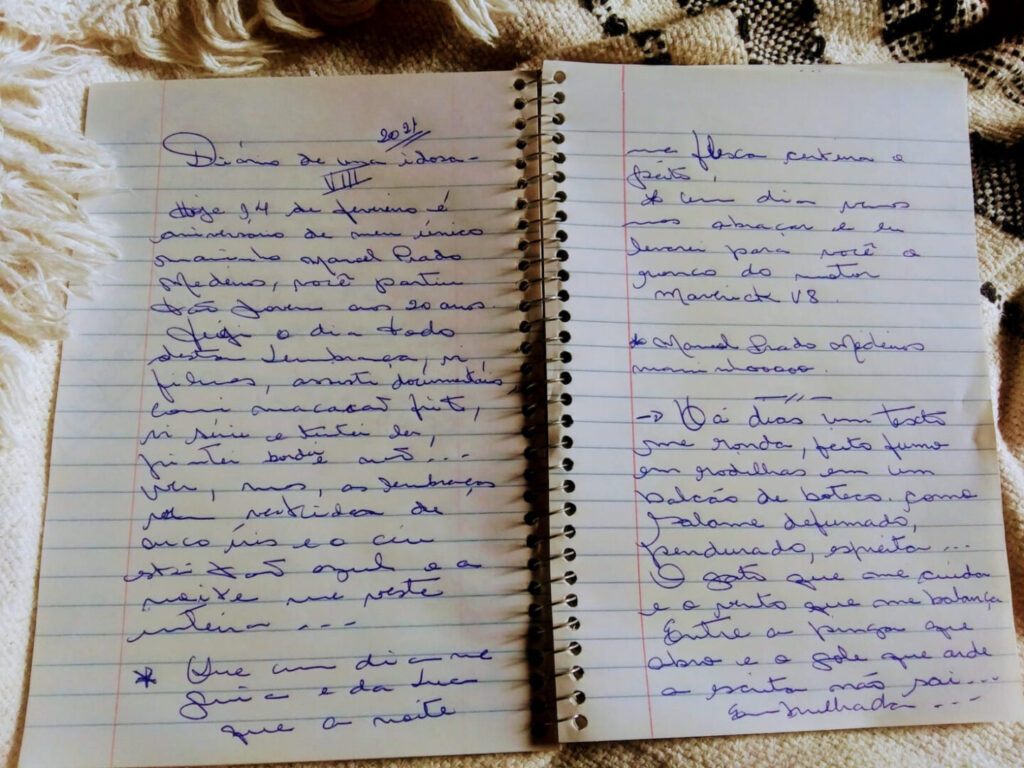 2021
Diário de uma idosa-
VIII
Hoje 14 de fevereiro é
aniversário de meu único
maninho Manoel Prado
Medeiros, você partiu
tão jovem aos 20 anos.
Fugi o dia todo
desta lembrança, vi
filmes, assisti documentários
comi macaxat frito,
vi série e tentei ler,
pintei bordei e até...
vin, mas, as lembranças
vem vestidas de
arco íris e o céu
está tão azul e a
noite me veste
inteira ...
* Que um dia me
guia e da lua
que a noite
me flexa certeira o
peito.
* Um dia vamos
nos abraçar e eu
levarei para você o
ronco do motor
Maverick V8.
* Manoel Prado Medeiros
maninhooooo.
-> Há dias um texto
me ronda, feito fumo
em rodilhas em um
balcão de boteco. Como
salame defumado,
pendurado, espreita ...
O gato que me cuida
e o vento que me balança
Entre a pinga que
abro e o gole que arde
a escrita não sai...
Embrulhada ...